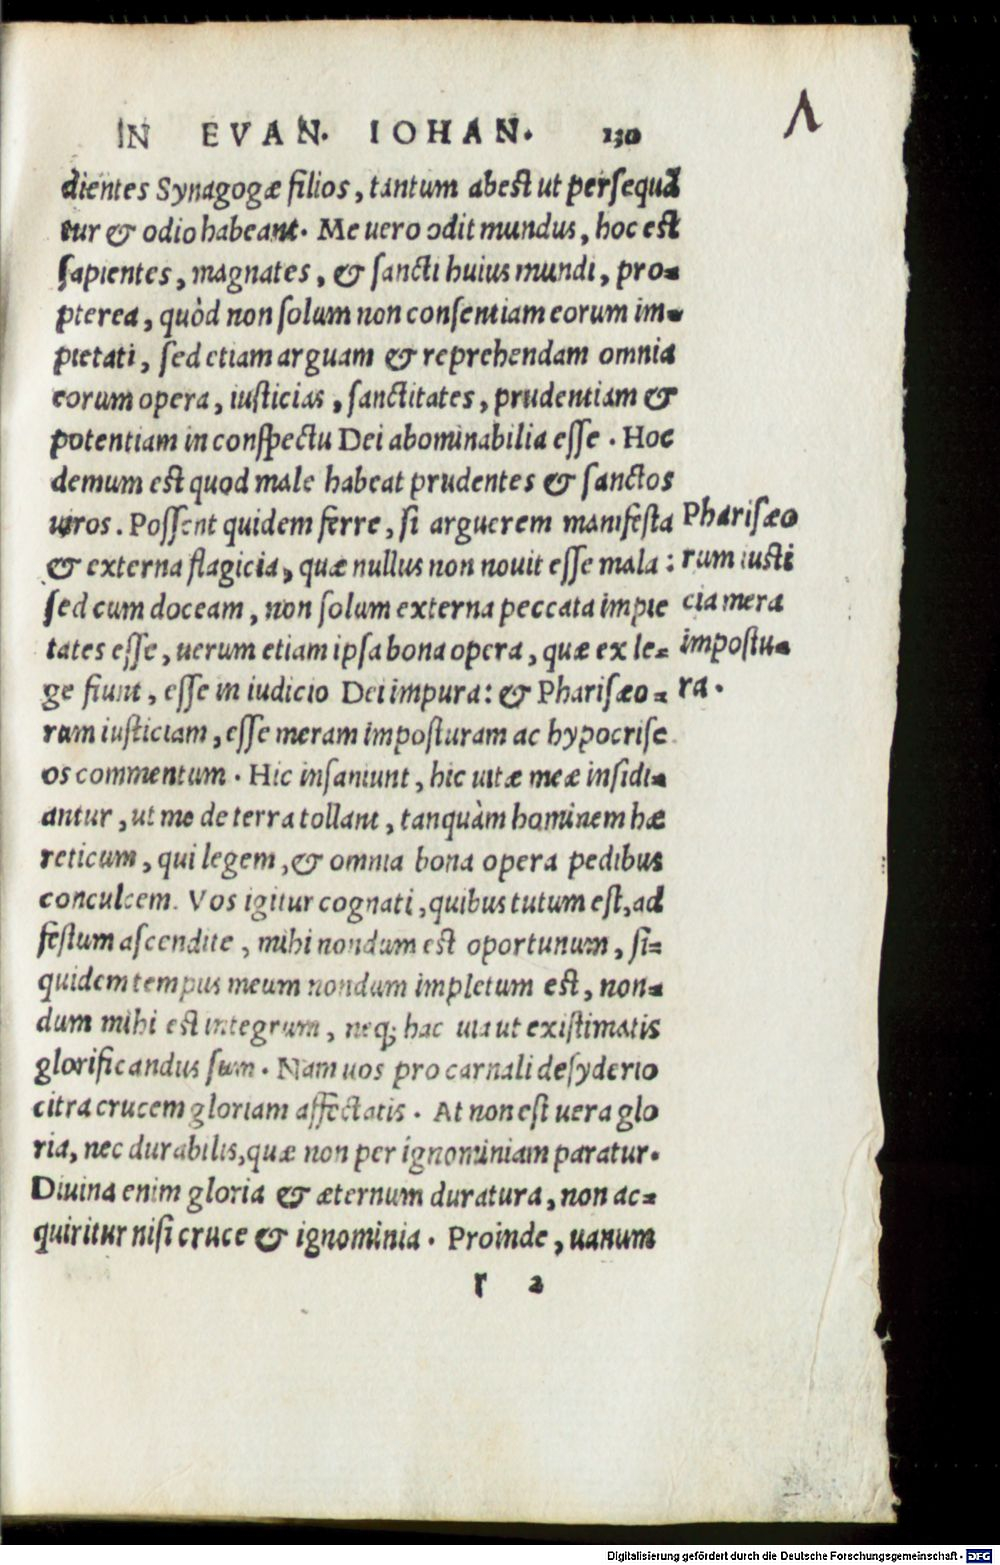 IN EVAN. IOHAN. 130
dientes Synagogæ filios, tantum abest ut persequã
tur & odio habeant. Me uero odit mundus, hoc est
sapientes, magnates, & sancti huius mundi, pro-
pterea, quòd non solum non consentiam eorum im-
pietati, sed etiam arguam & reprehendam omnia
eorum opera, iusticias, sanctitates, prudentiam &
potentiam in conspectu Dei abominabilia esse. Hoc
demum est quod male habeat prudentes & sanctos
uiros. Possent quidem ferre, si arguerem manifesta
& externa flagicia, quæ nullus non nouit esse mala:
sed cum doceam, non solum externa peccata impie
tates esse, uerum etiam ipsa bona opera, quæ ex le-
ge fiunt, esse in iudicio Dei impura: & Pharisæo-
rum iusticiam, esse meram imposturam ac hypocrise
os commentum. Hic insaniunt, hic uitæ meæ insidi-
antur, ut me de terra tollant, tanquàm hominem hæ
reticum, qui legem, & omnia bona opera pedibus
conculcem. Vos igitur cognati, quibus tutum est, ad
festum ascendite, mihi nondum est oportunum, si-
quidem tempus meum nondum impletum est, non-
dum mihi est integrum, neq; hac uia ut existimatis
glorificandus sum. Nam uos pro carnali desyderio
citra crucem gloriam affectatis. At non est uera glo
ria, nec durabilis, quæ non per ignominiam paratur.
Diuina enim gloria & æternum duratura, non ac-
quiritur nisi cruce & ignominia. Proinde, uanum
r 2
Pharisæo
rum iusti
cia mera
impostu-
ra.
Digitalisierung gefördert durch die Deutsche Forschungsgemeinschaft - DFG